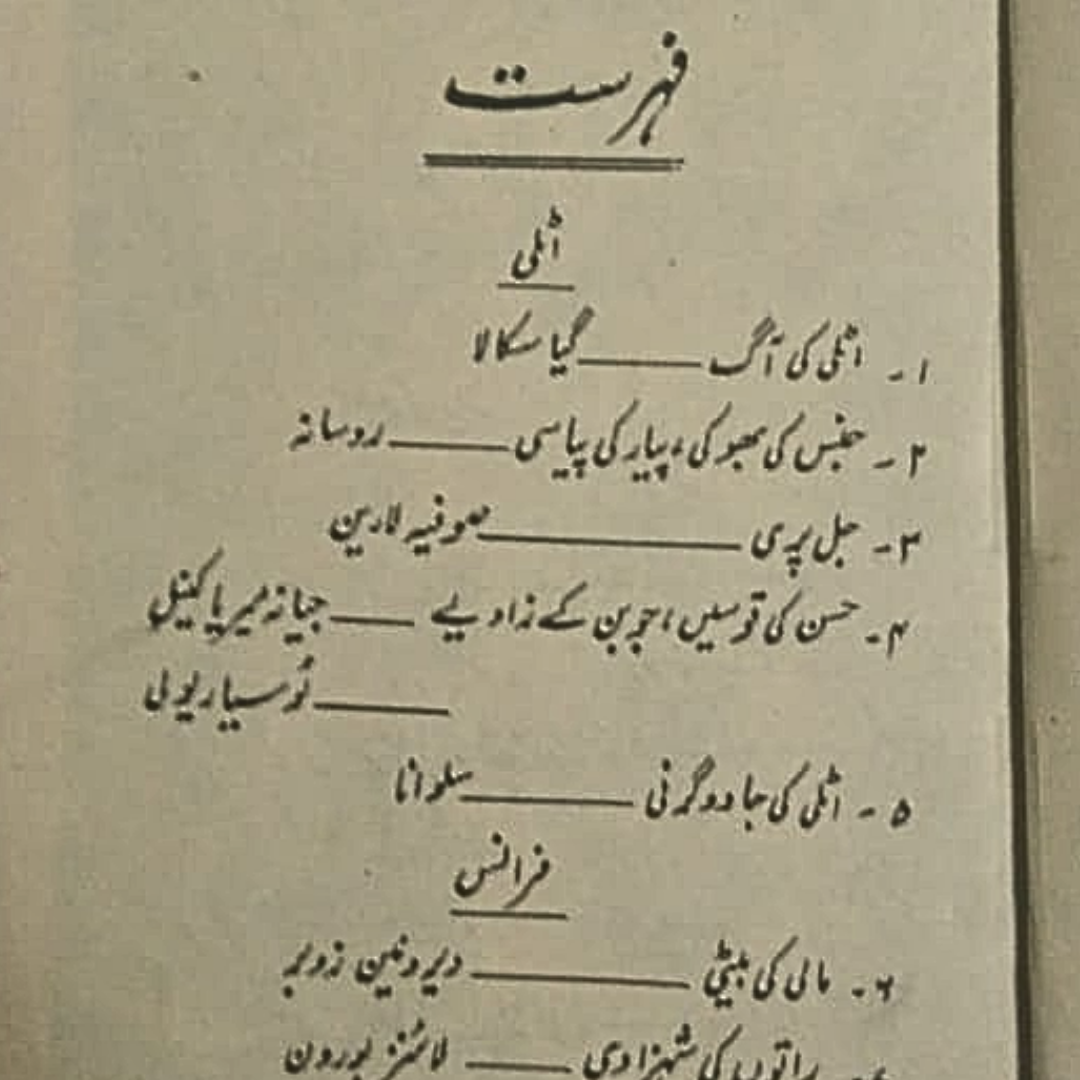 فہرست
اٹلی
۱۔ اٹلی کی آگ ——— گیا سکالا
۲۔ جنس کی بھوکی، پیار کی پیاسی ——— روسانہ
۳۔ جل پری ——— صوفیہ لارین
۴۔ حسن کی قوسیں، جوبن کے زاویے ——— جیانہ میریا کینیل
——— لُوسیا ریولی
۵۔ اٹلی کی جادوگرنی ——— سلوانا
فرانس
۶۔ مالی کی بیٹی ——— دیرونین زوبر
راتوں کی شہزادی ——— لائنز بورون